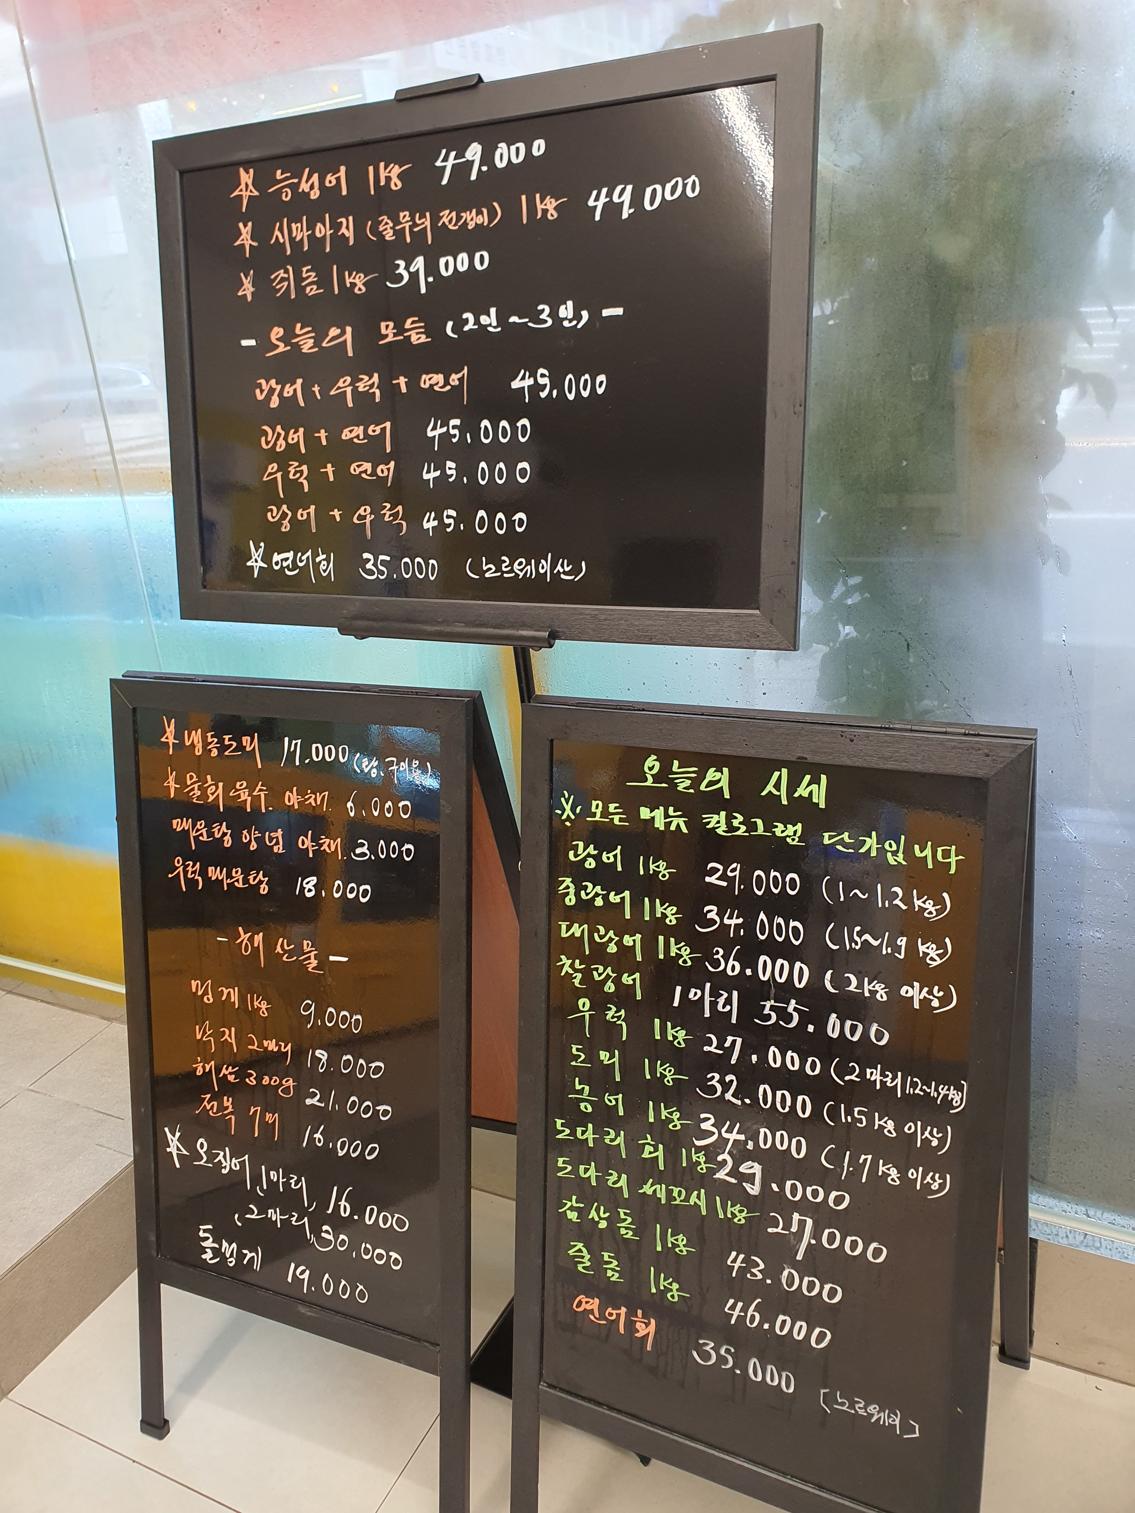 ☆ 능성어 1kg 49.000
☆ 시마아지 (줄무늬 전갱이) 1kg 49.000
☆ 쥐돔 1kg 39.000
- 오늘의 모듬 (2인~3인) -
광어+우럭+연어 45.000
광어+연어 45.000
우럭+연어 45.000
광어+우럭 45.000
☆연어회 35.000 (노르웨이산)
☆냉동도미 17.000 (탕.구이용)
☆물회육수.야채. 6.000
매운탕양념 야채. 3.000
우럭매운탕 18.000
- 해산물 -
멍게 1kg 9.000
낙지 2마리 18.000
해삼 300g 21.000
전복 7미 16.000
☆오징어 1마리, 16.000
(2마리, 30,000
돌멍게 19.000
오늘의 시세
※ 모든 메뉴 킬로그램 단가입니다
광어 1kg 29.000 (1~1.2kg)
중광어 1kg 34.000 (1.5~1.9kg)
대광어 1kg 36.000 (2kg 이상)
찰광어 1마리 55.000
우럭 1kg 27.000 (2마리 1.2~1.4kg)
도미 1kg 32.000 (1.5kg 이상)
농어 1kg 34.000 (1.7kg 이상)
도다리 회 1kg 29.000
도다리 세꼬시 1kg 27.000
감상돔 1kg 43.000
줄돔 1kg 46.000
연어회 35.000
[노르웨이]